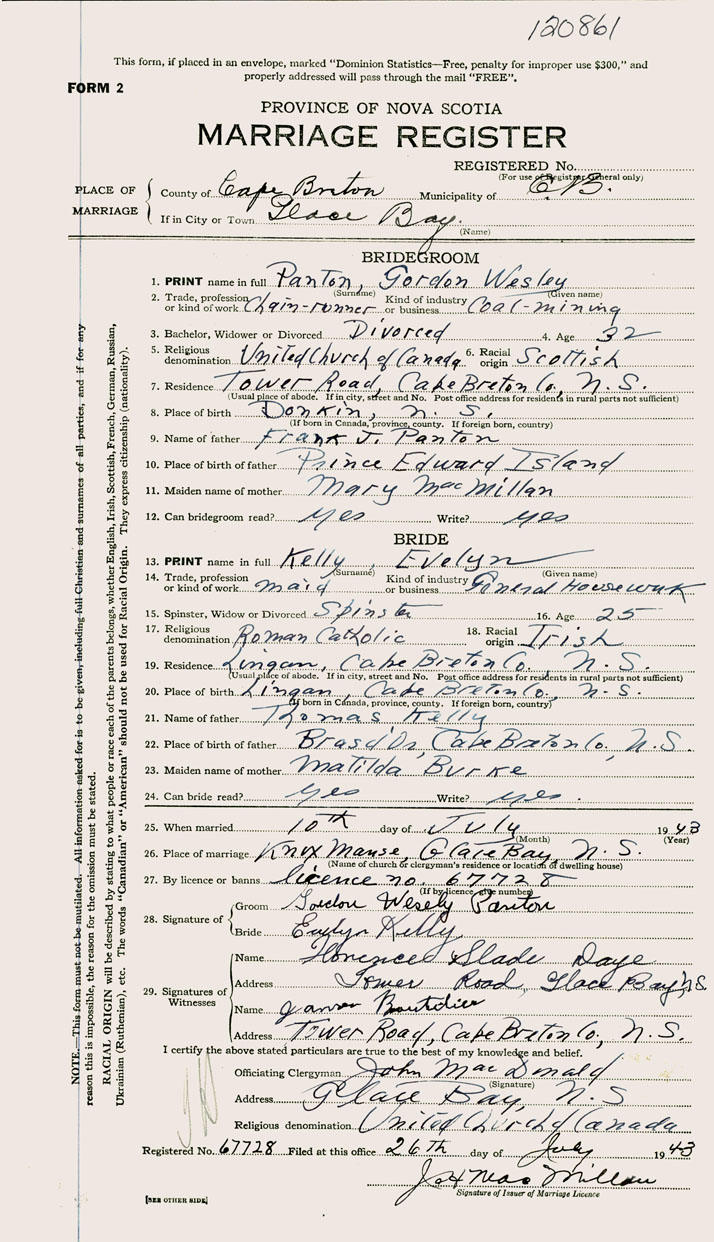 120861
This form, if placed in an envelope, marked "Dominion Statistics—Free, penalty for improper use $300," and
properly addressed will pass through the mail "FREE".
FORM 2
PROVINCE OF NOVA SCOTIA
MARRIAGE REGISTER
REGISTERED No.
(For use of Registrar General only)
PLACE OF MARRIAGE
County of Cape Breton Municipality of C.B.
If in City or Town Glace Bay.
(Name)
BRIDEGROOM
1. PRINT name in full Panton, Gordon Wesley
(Surname) (Given name)
2. Trade, profession or kind of work Chain-runner Kind of industry or business Coal-mining
3. Bachelor, Widower or Divorced Divorced 4. Age 32
5. Religious denomination United Church of Canada 6. Racial origin Scottish
7. Residence Tower Road, Cape Breton Co., N.S.
(Usual place of abode. If in city, street and No. Post office address for residents in rural parts not sufficient)
8. Place of birth Donkin, N.S.
(If born in Canada, province, county. If foreign born, country)
9. Name of father Frank J. Panton
10. Place of birth of father Prince Edward Island
11. Maiden name of mother Mary MacMillan
12. Can bridegroom read? yes Write? yes
BRIDE
13. PRINT name in full Kelly, Evelyn
(Surname) (Given name)
14. Trade, profession or kind of work maid Kind of industry or business General Housework
15. Spinster, Widow or Divorced Spinster 16. Age 25
17. Religious denomination Roman Catholic 18. Racial origin Irish
19. Residence Lingan, Cape Breton Co., N.S.
(Usual place of abode. If in city, street and No. Post office address for residents in rural parts not sufficient)
20. Place of birth Lingan, Cape Breton Co., N.S.
(If born in Canada, province, county. If foreign born, country)
21. Name of father Thomas Kelly
22. Place of birth of father Bras d'Or, Cape Breton Co., N.S.
23. Maiden name of mother Matilda Burke
24. Can bride read? yes Write? yes.
25. When married 10th day of July 1943
(Month) (Year)
26. Place of marriage Knox Manse, Glace Bay, N.S.
(Name of church or clergyman's residence or location of dwelling house)
27. By licence or banns licence no. 67728
(If by licence, give number)
28. Signature of
Groom Gordon Wesely Panton
Bride Evelyn Kelly
29. Signatures of Witnesses
Name Florence Slade Daye
Address Tower Road, Glace Bay N.S.
Name Boutilier
Address Tower Road, Cape Breton Co., N.S.
I certify the above stated particulars are true to the best of my knowledge and belief.
Officiating Clergyman John MacDonald
(Signature)
Address Glace Bay, N.S
Religious denomination United Church of Canada
Registered No. 67728 Filed at this office 26th day of July 1943
MacMillan
Signature of Issuer of Marriage Licence
[SEE OTHER SIDE]
NOTE.—This form must not be mutilated. All information asked for is to be given, including full Christian and surnames of all parties, and if for any
reason this is impossible, the reason for the omission must be stated.
RACIAL ORIGIN will be described by stating to what people or race each of the parents belongs, whether English, Irish, Scottish, French, German, Russian,
Ukrainian (Ruthenian), etc. The words "Canadian" or "American" should not be used for Racial Origin. They express citizenship (nationality).